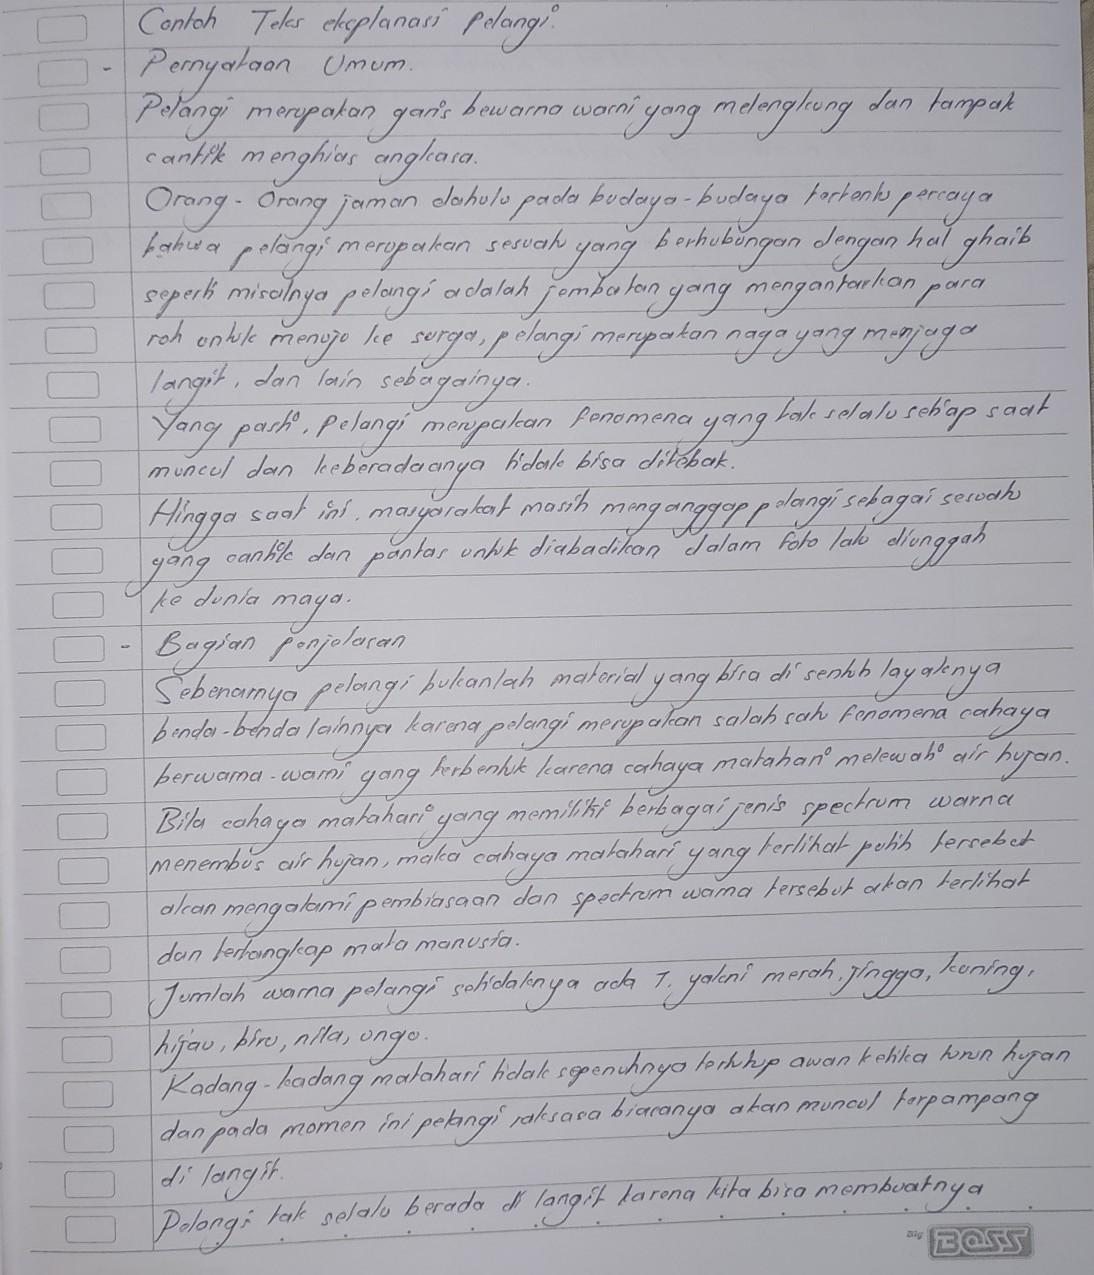 Contoh Teks eksplanasi Pelangi.
- Pernyataan Umum.
Pelangi merupakan garis bewarna warni yang melengkung dan tampak
cantik menghias angkasa.
Orang - Orang jaman dahulu pada budaya - budaya tertentu percaya
bahwa pelangi merupakan sesuatu yang berhubungan dengan hal ghaib
seperti misalnya pelangi adalah jembatan yang mengantarkan para
roh untuk menuju ke surga, pelangi merupakan naga yang menjaga
langit, dan lain sebagainya.
Yang pasti, Pelangi merupakan fenomena yang tak selalu setiap saat
muncul dan keberadaanya tidak bisa ditebak.
Hingga saat ini, masyarakat masih menganggap pelangi sebagai sesuatu
yang cantik dan pantas untuk diabadikan dalam foto lalu diunggah
ke dunia maya.
- Bagian penjelasan
Sebenarnya pelangi bukanlah material yang bisa di sentuh layaknya
benda-benda lainnya karena pelangi merupakan salah satu fenomena cahaya
berwarna - warni yang terbentuk karena cahaya matahari melewati air hujan.
Bila cahaya matahari yang memiliki berbagai jenis spectrum warna
menembus air hujan, maka cahaya matahari yang terlihat putih tersebut
akan mengalami pembiasaan dan spectrum warna tersebut akan terlihat
dan tertangkap mata manusia.
Jumlah warna pelangi setidaknya ada 7, yakni merah, jingga, kuning,
hijau, biru, nila, ungu.
Kadang - kadang matahari tidak sepenuhnya tertutup awan ketika turun hujan
dan pada momen ini pelangi raksasa biasanya akan muncul terpampang
di langit.
Pelangi tak selalu berada di langit karena kita bisa membuatnya
Big BOSS